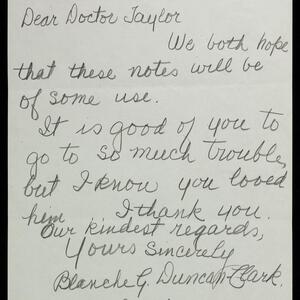 Dear Doctor Taylor
We both hope
that these notes will be
of some use.
It is good of you to
go to so much trouble,
but I know you loved
him I thank you.
Our kindest regards,
Yours Sincerely
Blanche G. Duncan-Clark.